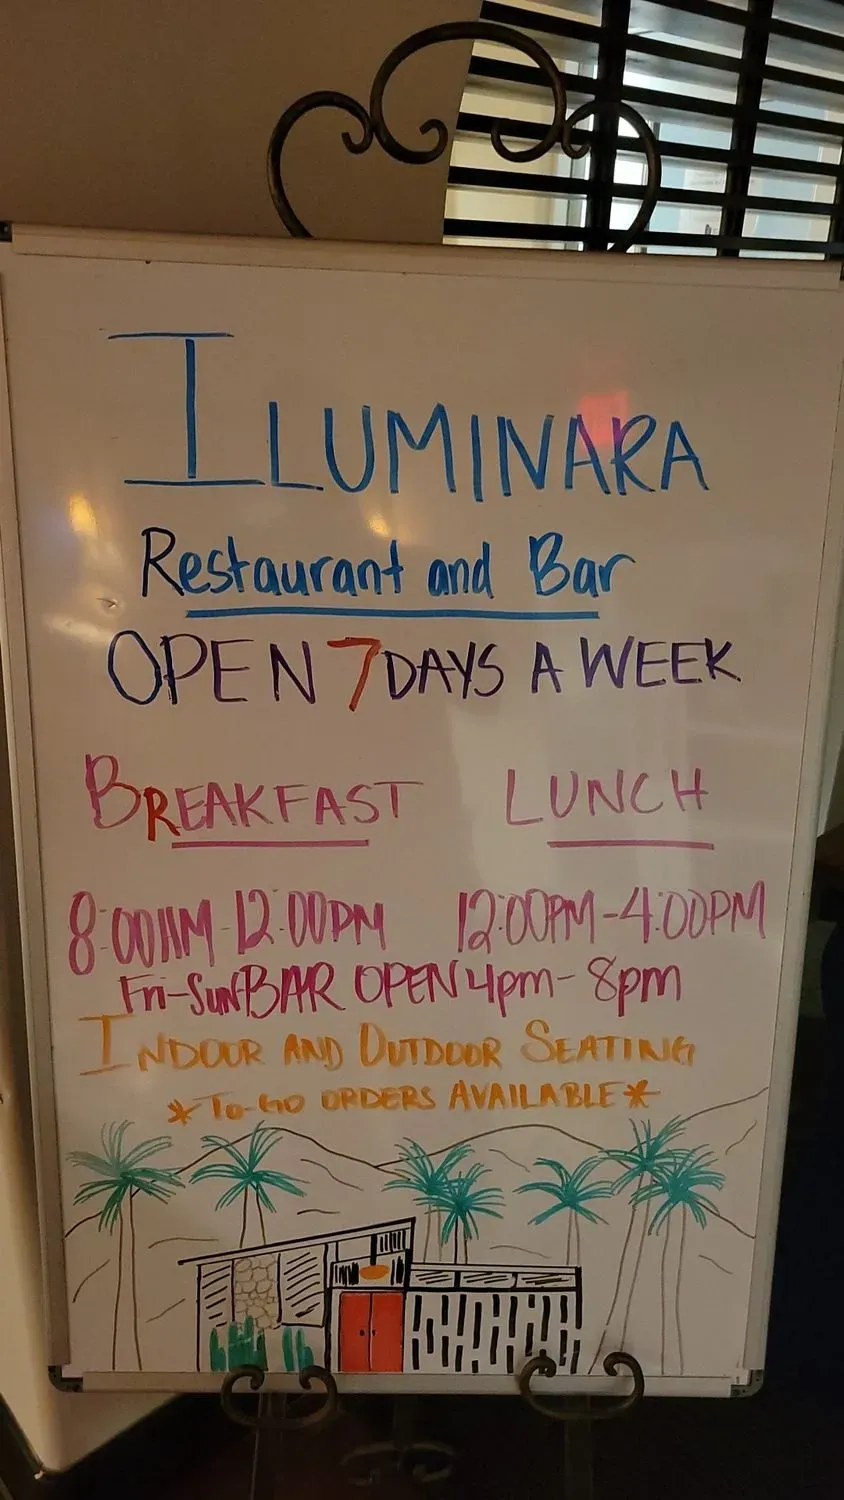 ILUMINARA
Restaurant and Bar
OPEN 7 DAYS A WEEK
BREAKFAST LUNCH
8:00AM-12:00PM 12:00PM-4:00PM
Fri-Sun BAR OPEN 4pm-8pm
INDOOR AND OUTDOOR SEATING
*To-Go ORDERS AVAILABLE*